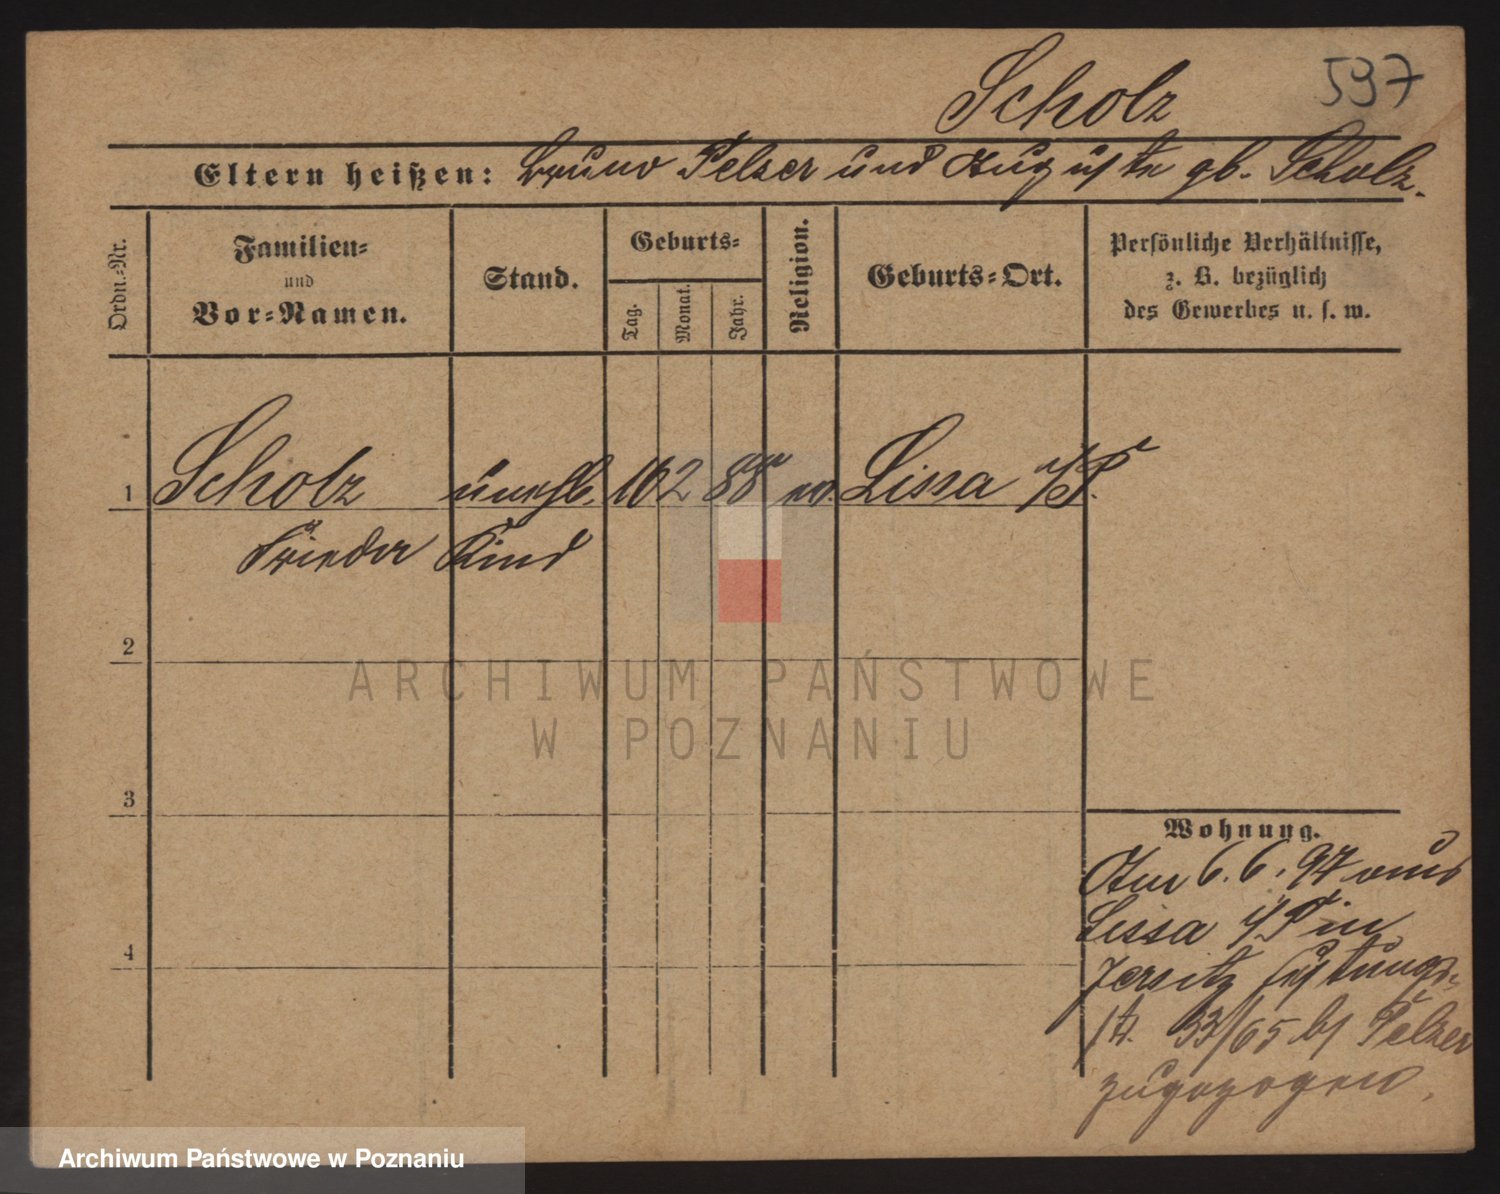 597
Scholz
Eltern heißen: Bruno Pelzer und Auguste gb. Scholz.
Ordn.=Nr.
Familien=
und
Vor=Namen.
Stand.
Geburts=
Tag.
Monat.
Jahr.
Religion.
Geburts=Ort.
Persönliche Verhältnisse,
z. B. bezüglich
des Gewerbes u. s. w.
1 Scholz unehl. 16 2 88 ev. Lissa i/P.
Frieda Kind
2
3
4
Wohnung.
Am 6.6.97 aus
Lissa i/P in
Jersitz Festungs=
str. 33/65 b/ Pelzer
zugezogen.
ARCHIWUM PAŃSTWOWE
W POZNANIU
Archiwum Państwowe w Poznaniu